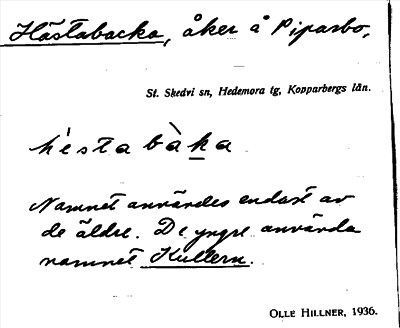 Hästabacka, åker å Piparbo,
St. Skedvi sn, Hedemora tg, Kopparbergs län.
hèstabàka
Namnet användes endast av
de äldre. De yngre använda
namnet Kullern.
OLLE HILLNER, 1936.